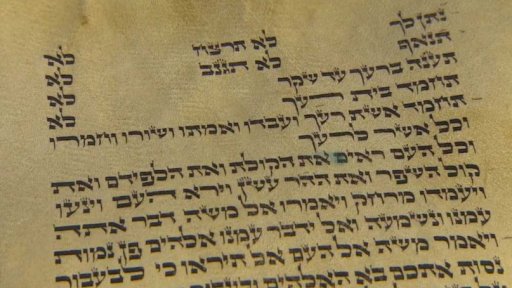 נתן לך לא תרצח לא
תנאף לא תגנב לא
תענה ברעך עד שקר לא
תחמד בית רעך לא
תחמד אשת רעך ועבדו ואמתו ושורו וחמרו
וכל אשר לרעך
וכל העם ראים את הקולת ואת הלפידם ואת
קול השפר ואת ההר עשן וירא העם וינעו
ויעמדו מרחק ויאמרו אל משה דבר אתה
עמנו ונשמעה ואל ידבר עמנו אלהים פן נמות
ויאמר משה אל העם אל תיראו כי לבעבור
נסות אתכם בא האלהים